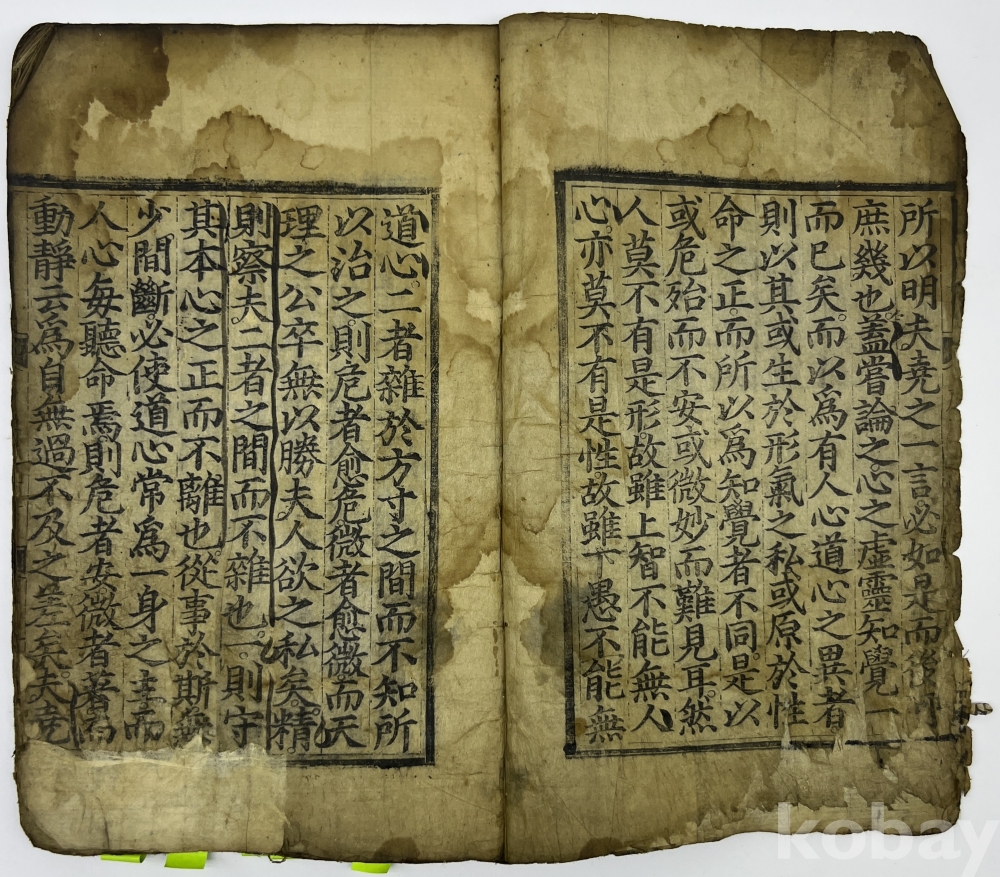 所以明夫堯之一言必如是而後可
庶幾也蓋嘗論之心之虛靈知覺一
而已矣而以爲有人心道心之異者
則以其或生於形氣之私或原於性
命之正而所以爲知覺者不同是以
或危殆而不安或微妙而難見耳然
人莫不有是形故雖上智不能無人
心亦莫不有是性故雖下愚不能無
道心二者雜於方寸之間而不知所
以治之則危者愈危微者愈微而天
理之公卒無以勝夫人欲之私矣精
則察夫二者之間而不雜也一則守
其本心之正而不離也從事於斯無
少間斷必使道心常爲一身之主而
人心每聽命焉則危者安微者著而
動靜云爲自無過不及之差矣夫堯
kobay